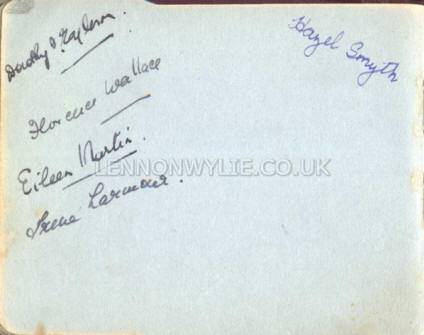 Dorothy I. Taylerson.
Hazel Smyth
Florence Wallace
Eileen Martin.
LENNONWYLIE.CO.UK
Irene Larmour.